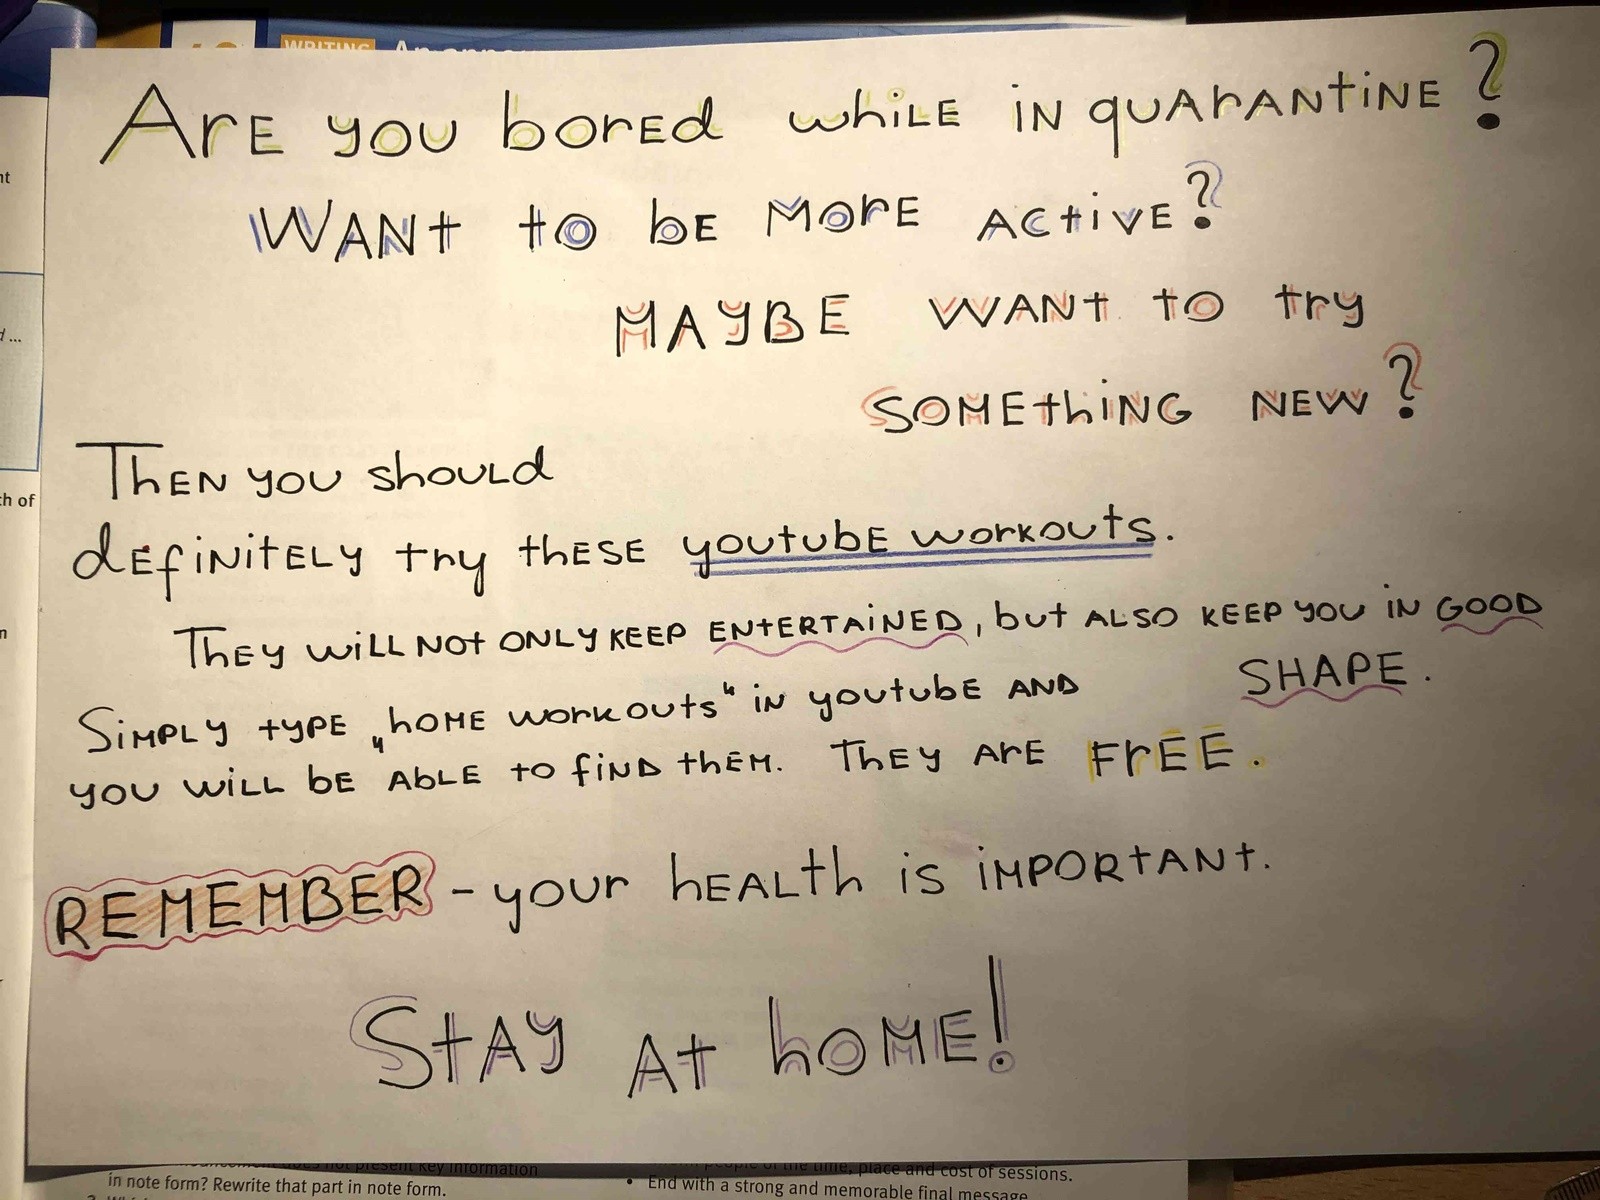 WRITING
Are you bored while in quarantine?
Want to be more active?
Maybe want to try
something new?
Then you should
definitely try these youtube workouts.
They will not only keep entertained, but also keep you in good
shape.
Simply type „home workouts“ in youtube and
you will be able to find them. They are FREE.
REMEMBER - your health is important.
Stay at home!
th of
does not present key information
in note form? Rewrite that part in note form.
people of the time, place and cost of sessions.
• End with a strong and memorable final message